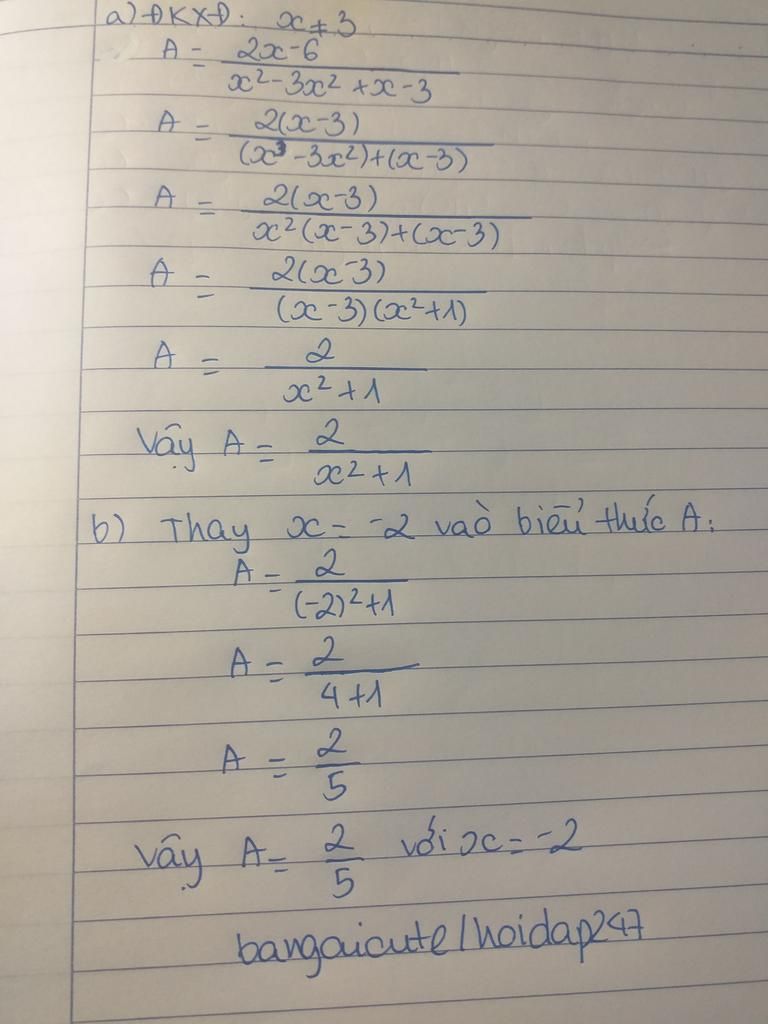 a) ĐKXĐ: x ≠ 3
A = \frac{2x-6}{x²-3x²+x-3}
A = \frac{2(x-3)}{(x³-3x²)+(x-3)}
A = \frac{2(x-3)}{x²(x-3)+(x-3)}
A = \frac{2(x-3)}{(x-3)(x²+1)}
A = \frac{2}{x²+1}
Vậy A = \frac{2}{x²+1}
b) Thay x = -2 vào biểu thức A:
A = \frac{2}{(-2)²+1}
A = \frac{2}{4+1}
A = \frac{2}{5}
Vậy A = \frac{2}{5} với x = -2
bangaicute/hoidap247